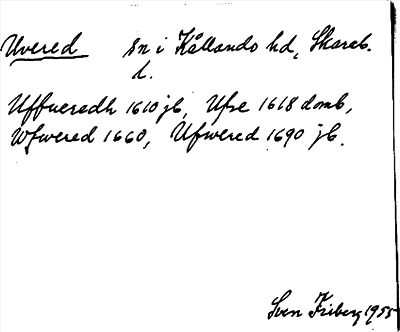 Uvered sn i Kållands hd, Skarab.
l.
Uffueredh 1610 jb, Ufre 1618 domb,
Wfwered 1660, Ufwered 1690 jb.
Sven Friberg 1955